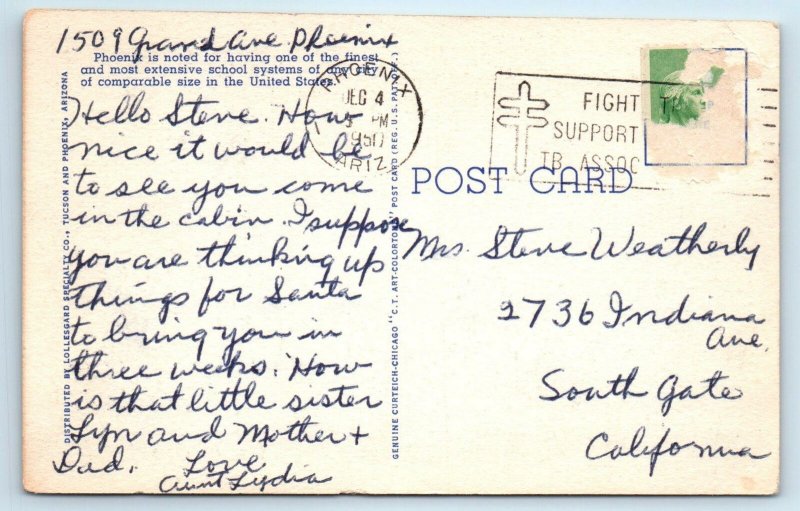 1509 Grand Ave Phoenix
Phoenix is noted for having one of the finest
and most extensive school systems of any city
of comparable size in the United States.
Hello Steve. How
nice it would be
to see you come
in the cabin. I suppose
you are thinking up
things for Santa
to bring you in
three weeks. How
is that little sister
Lyn and Mother +
Dad. Love
Aunt Lydia
DISTRIBUTED BY LOLLESGARD SPECIALTY CO., TUCSON AND PHOENIX, ARIZONA
GENUINE CURTEICH-CHICAGO "C.T. ART-COLORTONE" POST CARD (REG. U.S. PAT. OFF.)
PHOENIX
DEC 4
PM
1950
ARIZ.
FIGHT TB
SUPPORT
TB ASSOC
POST CARD
Mrs. Steve Weatherly
2736 Indiana
Ave.
South Gate
California